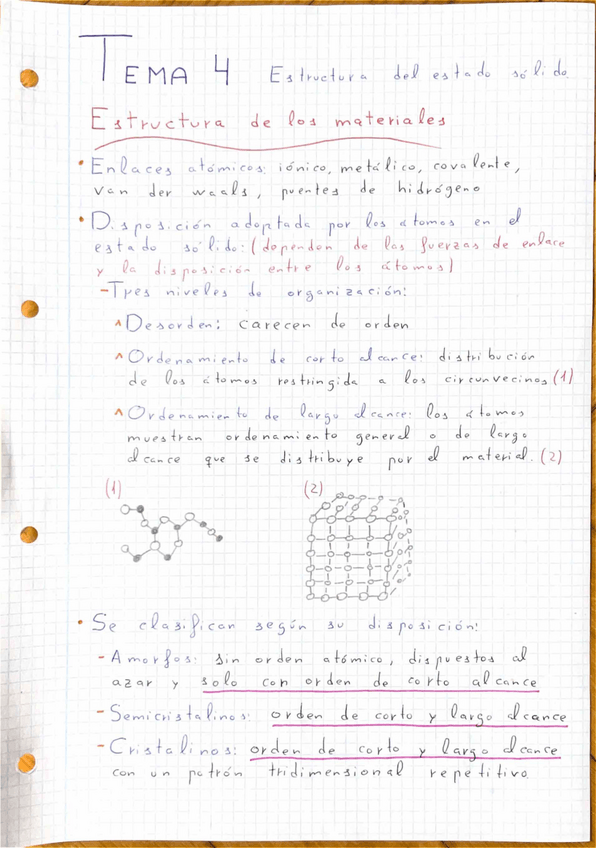 TEMA 4 Estructura del estado sólido
Estructura de los materiales
• Enlaces atómicos: iónico, metálico, covalente,
van der waals, puentes de hidrógeno
• Disposición adoptada por los átomos en el
estado sólido: (dependen de las fuerzas de enlace
y la disposición entre los átomos)
- Tres niveles de organización:
^ Desorden: carecen de orden
^ Ordenamiento de corto alcance: distribución
de los átomos restringida a los circunvecinos (1)
^ Ordenamiento de largo alcance: los átomos
muestran ordenamiento general o de largo
alcance que se distribuye por el material. (2)
(1) (2)
• Se clasifican según su disposición:
- Amorfos: sin orden atómico, dispuestos al
azar y solo con orden de corto alcance
- Semicristalinos: orden de corto y largo alcance
- Cristalinos: orden de corto y largo alcance
con un patrón tridimensional repetitivo.